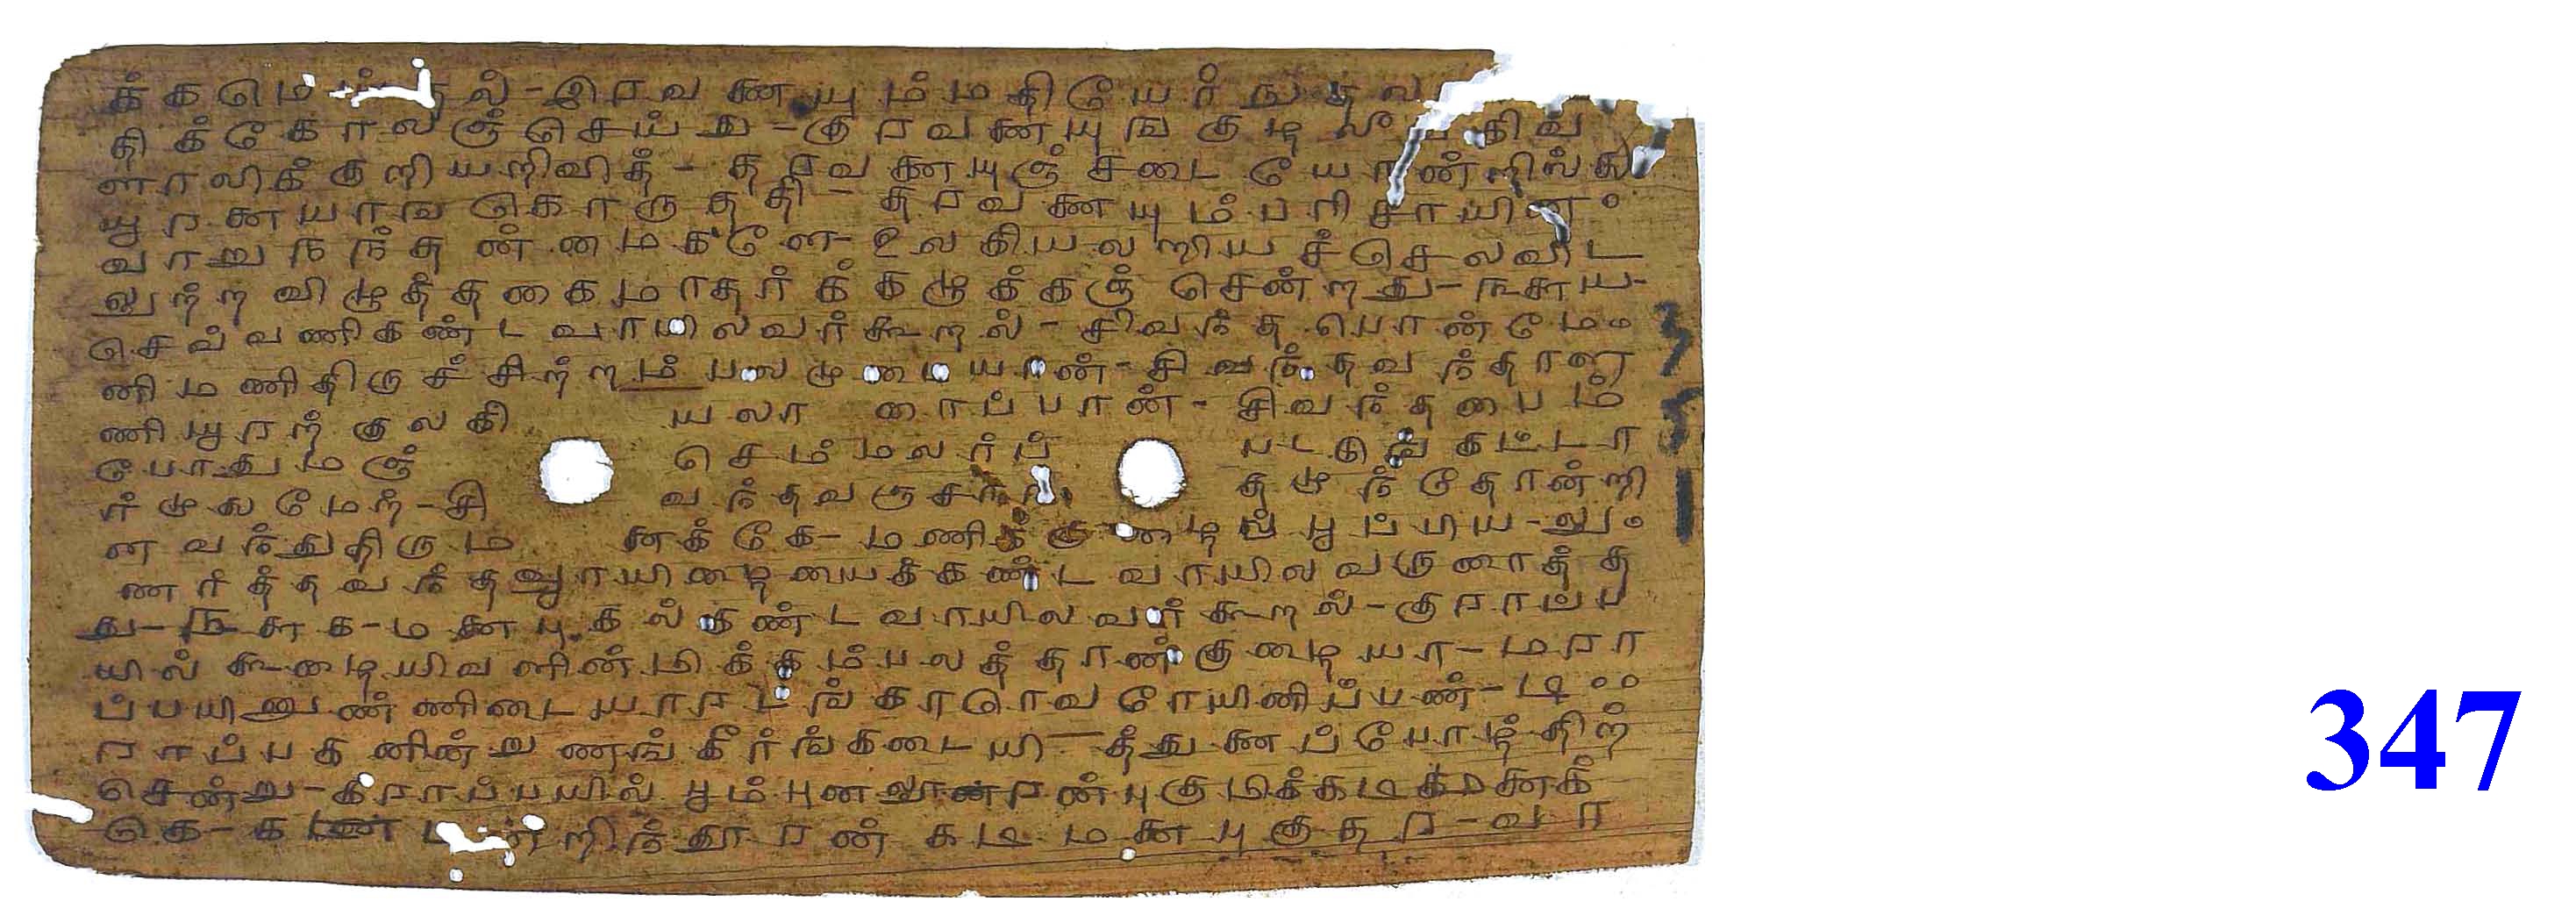 க்கமெ தல்-இரவணையும்மதியேர்நுதல
திக்கோலஞ்செய்து-குரவணையுங்குழலி திவ
ளாலிக்குறியறிவித்-தரவணையுஞ்சடையோன்றில்லை
யூரனையாங்கொருத்தி-தரவணையும்பரிசாயின
வாறுநந்தன்மைகளே-உலகியலறியச்செலவிட
லுற்றவிழுத்தகைமாதர்க்கழுக்கஞ்சென்றது-௩௬௰-
செவ்வணிகண்டவாயிலவர்கூறல்-சிவந்தபொன்மே
ணிமணிதிருச்சிற்றம்பலமுடையான்-சிவந்தவந்தாளு
ணியூரற்குலகி யலா ரைப்பான்-சிவந்தபைம
போதுமஞ் செம்மலர்ப் பட்டுங்கட்டா
ர்முலைமேற்-சி வந்தவருசா தழுந்தோன்றி
னவந்துதிரும னக்கே-மணிக்குழைபூப்பிய-லு
ணர்த்தவந்தஆயிழையைக்கண்டவாயிலவருரைத்த
து-௩௬௧-மனைபுகல்கண்டவாயிலவர்கூறல்-குராப்ப
யில்கூழையிவளின்மிக்கம்பலத்தான்குழையா-மரா
ப்பயிலுண்ணிடையாரடங்காரெவரேயினிப்பண்-டி
ராப்பகனின்றுணங்கீர்ங்கடையி-த்துணைப்போழ்திற்
சென்று-கராப்பயில்பூம்புனலூரன்புகுமிக்கடிமனைக்
கே- ன்றிந்தூரன்கடிமனைபுகுதர-வா
347